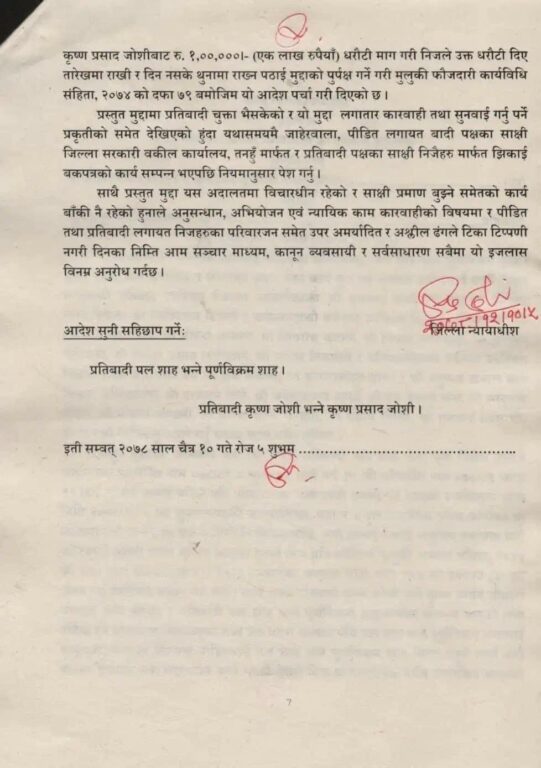 कृष्ण प्रसाद जोशीबाट रु. १,००,०००।- (एक लाख रुपैयाँ) धरौटी माग गरी निजले उक्त धरौटी दिए
तारेखमा राखी र दिन नसके थुनामा राख्न पठाई मुद्दाको पुर्पक्ष गर्ने गरी मुलुकी फौजदारी कार्यविधि
संहिता, २०७४ को दफा ७९ बमोजिम यो आदेश पर्चा गरी दिएको छ।
प्रस्तुत मुद्दामा प्रतिबादी चुक्ता भैसकेको र यो मुद्दा लगातार कारवाही तथा सुनवाई गर्नु पर्ने
प्रकृतीको समेत देखिएको हुंदा यथासमयमै जाहेरवाला, पीडित लगायत बादी पक्षका साक्षी
जिल्ला सरकारी वकील कार्यालय, तनहुँ मार्फत र प्रतिबादी पक्षका साक्षी निजैहरु मार्फत झिकाई
बकपत्रको कार्य सम्पन्न भएपछि नियमानुसार पेश गर्नु।
साथै प्रस्तुत मुद्दा यस अदालतमा विचाराधीन रहेको र साक्षी प्रमाण बुझ्ने समेतको कार्य
बाँकी नै रहेको हुनाले अनुसन्धान, अभियोजन एवं न्यायिक काम कारवाहीको विषयमा र पीडित
तथा प्रतिबादी लगायत निजहरुका परिवारजन समेत उपर अमर्यादित र अश्लील ढंगले टिका टिप्पणी
नगरी दिनका निम्ति आम सञ्चार माध्यम, कानून ब्यवसायी र सर्वसाधारण सबैमा यो इजलास
विनम्र अनुरोध गर्दछ।
जिल्ला न्यायाधीश
आदेश सुनी सहिछाप गर्नेः
प्रतिबादी पल शाह भन्ने पूर्णविक्रम शाह।
प्रतिबादी कृष्ण जोशी भन्ने कृष्ण प्रसाद जोशी।
इती सम्वत् २०७८ साल चैत्र १० गते रोज ५ शुभम्
७